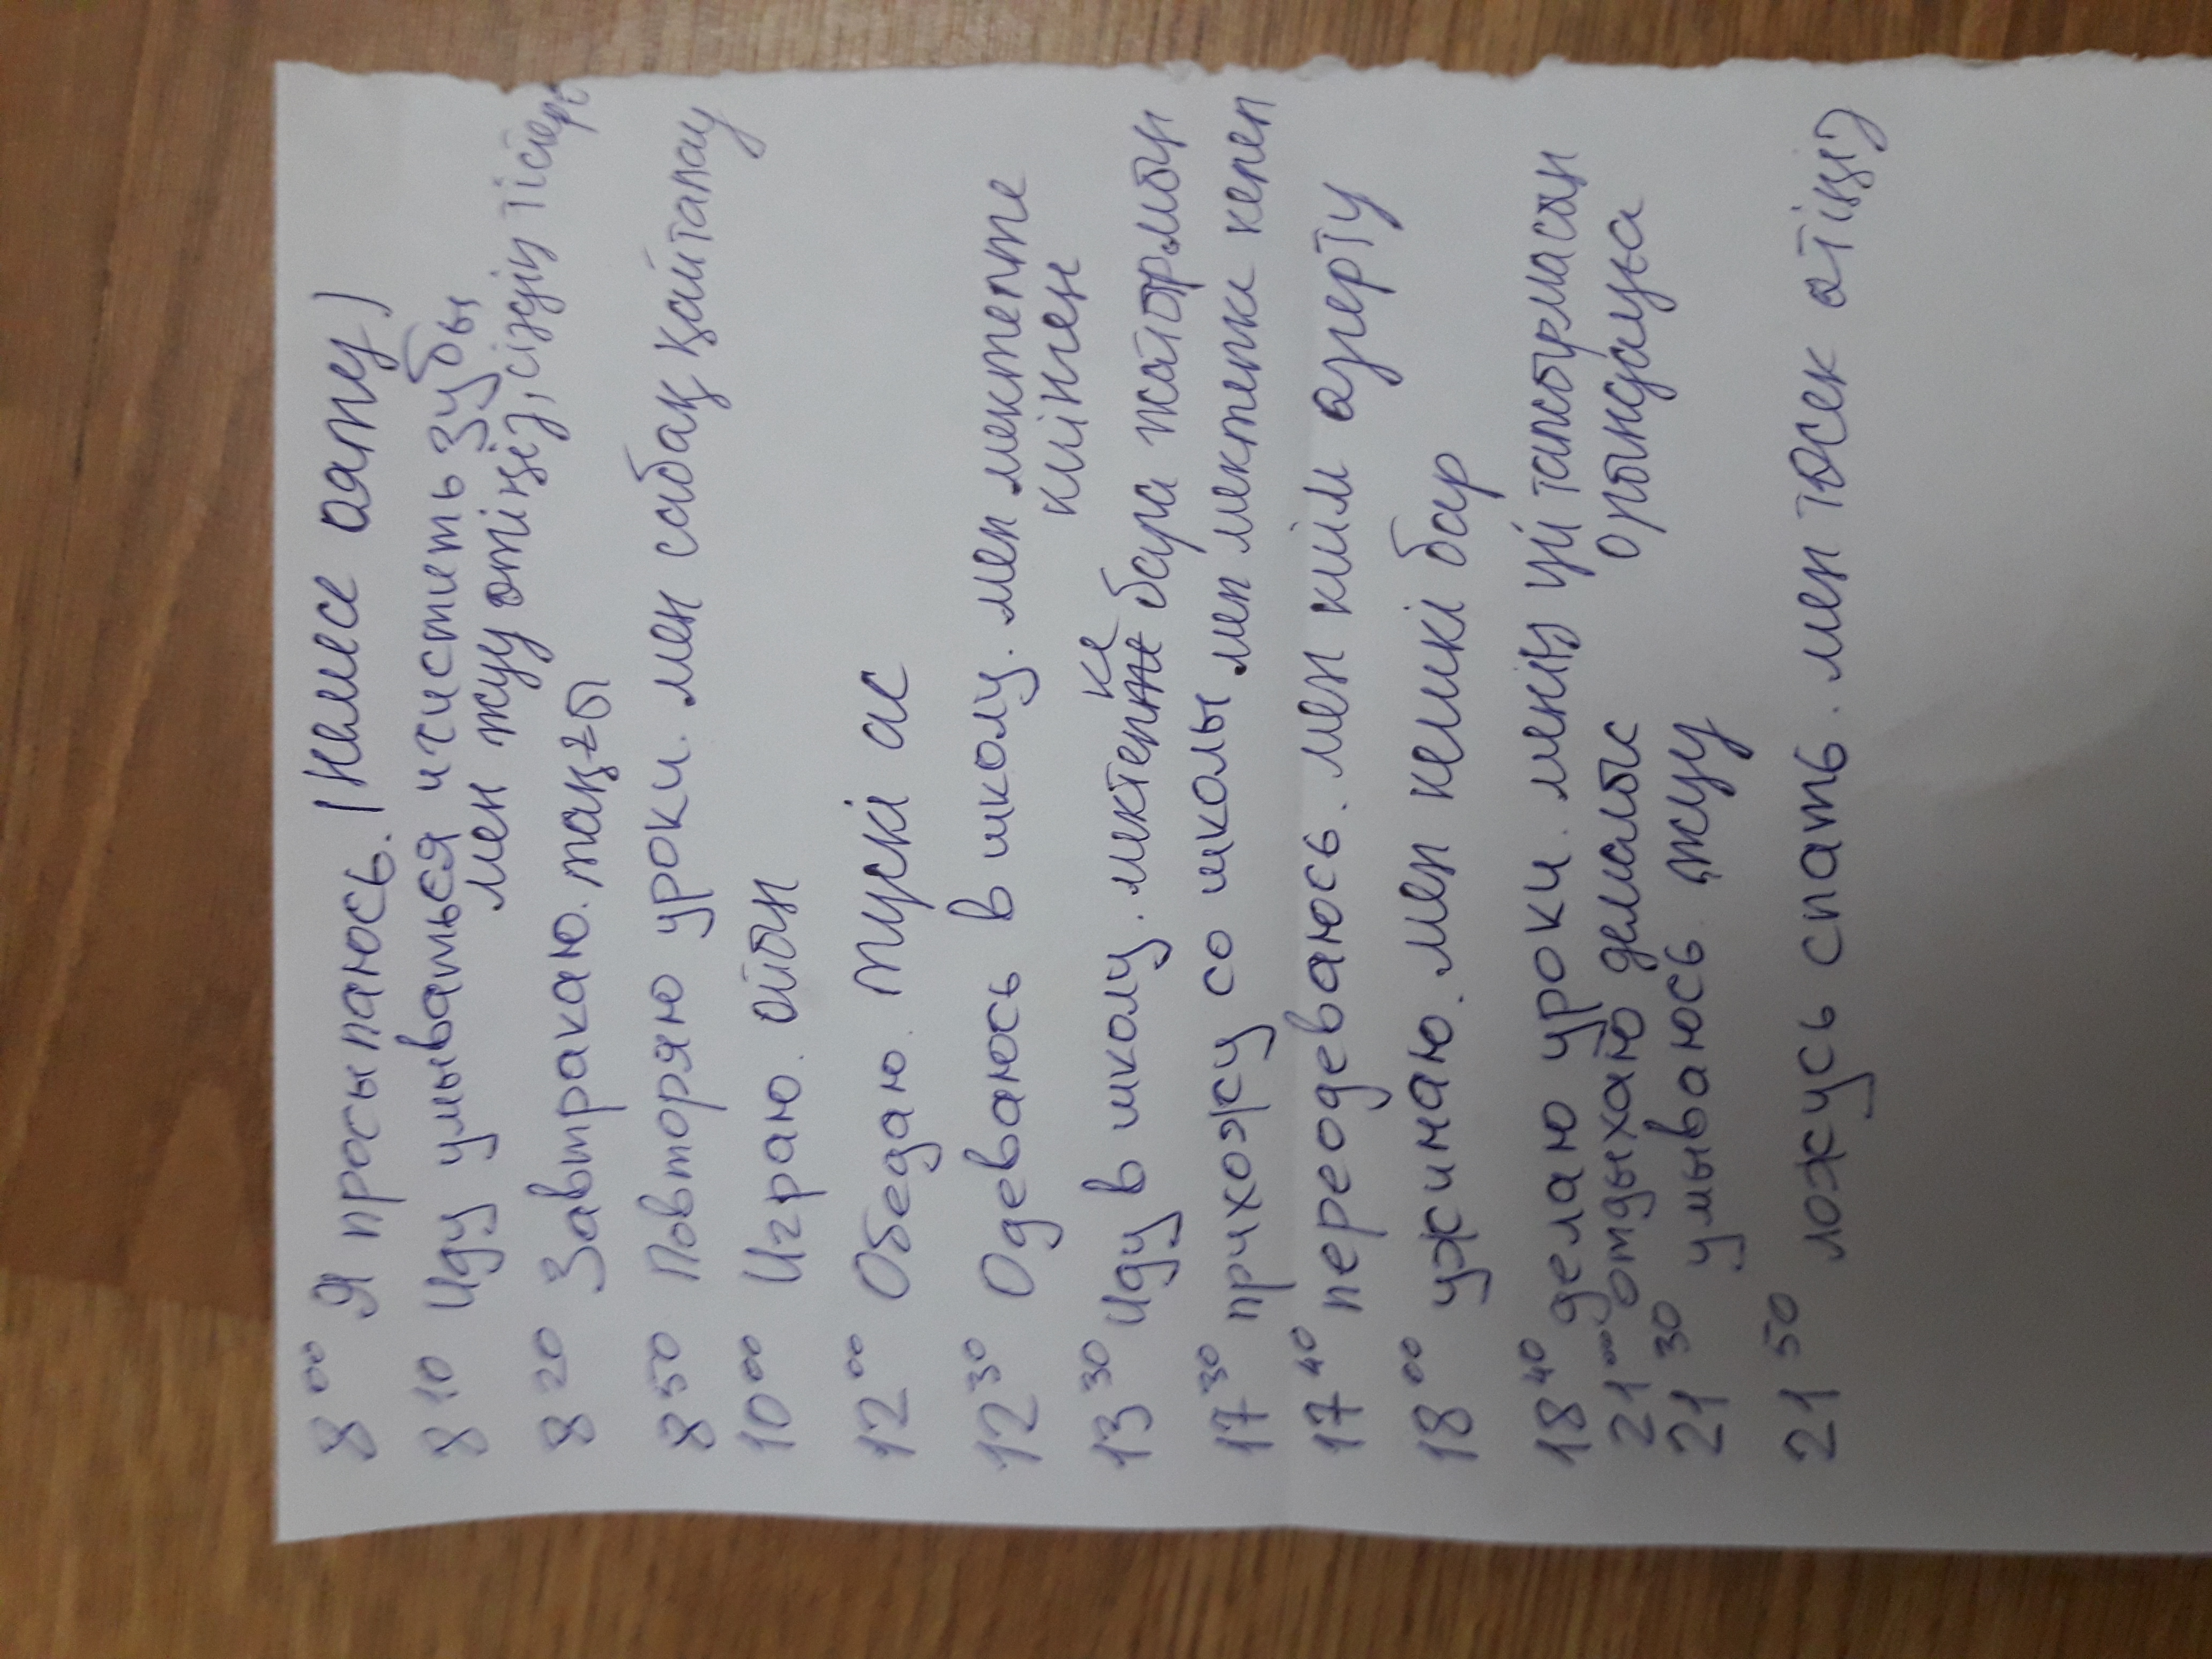 8 00 Я просыпаюсь. (немесе ояту)
8 10 Иду умываться и чистить зубы,
мен жуу өтіңіз, сіздің тістері
8 20 Завтракаю. таңғы
8 50 Повторяю уроки. мен сабақ қайталау
10 00 Играю. ойын
12 00 Обедаю. түскі ас
12 30 Одеваюсь в школу. мен мектепте
киінген
13 30 Иду в школу. мектепке бара жатырмын
17 30 прихожу со школы мен мектепке келеп
17 40 переодеваюсь. мен киім өзгерту
18 00 ужинаю. мен кешкі бар
18 40 делаю уроки. менің үй тапсырмасын
орындауға
21 00 отдыхаю демалыс
21 30 умываюсь. жуу
21 50 ложусь спать. мен төсек өтіңіз